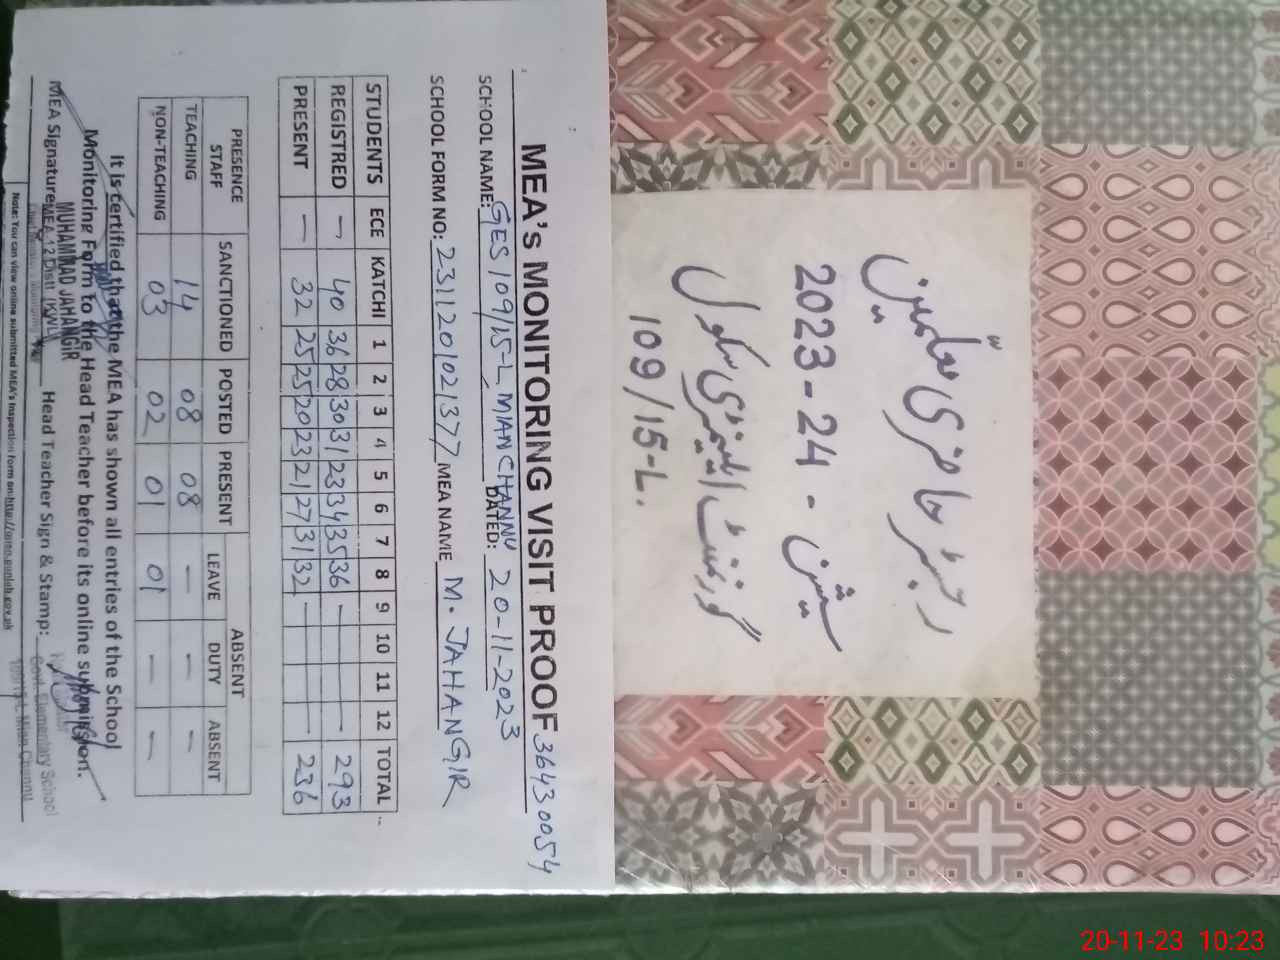 MEA's MONITORING VISIT PROOF 36430054
SCHOOL NAME: GES 109/15-L MIANCHANNU DATED: 20-11-2023
SCHOOL FORM NO: 2311201021377 MEA NAME M. JAHANGIR
STUDENTS ECE KATCHI 1 2 3 4 5 6 7 8 9 10 11 12 TOTAL
REGISTRED — 40 36 28 30 31 23 34 35 36 — — — — 293
PRESENT — 32 25 25 20 23 21 27 31 32 — — — — 236
PRESENCE STAFF SANCTIONED POSTED PRESENT ABSENT
LEAVE DUTY ABSENT
TEACHING 14 08 08 — — —
NON-TEACHING 03 02 01 01 — —
It is certified that the MEA has shown all entries of the School
Monitoring Form to the Head Teacher before its online submission.
MUHAMMAD JAHANGIR
MEA Signature Head Teacher Sign & Stamp:
MEA 12 Distt (KWL)
Govt. Elementary School
109/15-L Mian Channu
Note: You can view online submitted MEA's inspection form on:
رجسٹر حاضری معلمین
سیشن - 2023-24
گورنمنٹ ایلیمنٹری سکول
109/15-L.
20-11-23 10:23